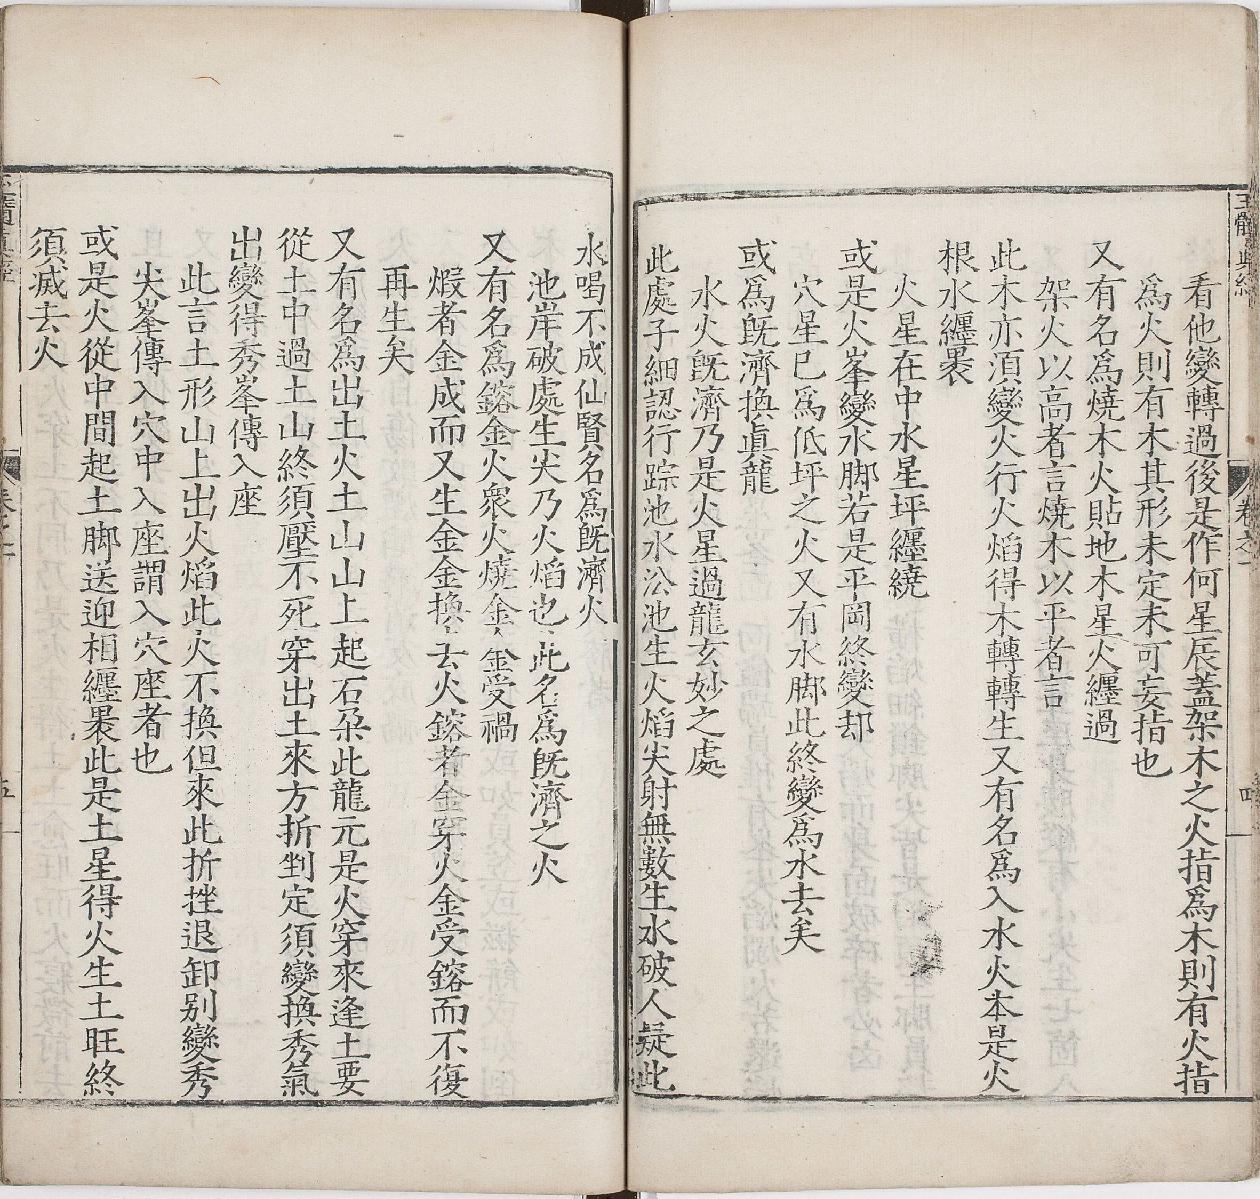 玉髓真經
卷之一
四
看他變轉過後是作何星辰蓋架木之火指爲木則有火指
爲火則有木其形未定未可妄指也
又有名爲燒木火貼地木星火纏過
架火以高者言燒木以平者言
此木亦須變火行火焰得木轉轉生又有名爲入水火本是火
根水纏裹
火星在中水星坪纏繞
或是火峯變水脚若是平岡終變却
穴星巳爲低坪之火又有水脚此終變爲水去矣
或爲旣濟換眞龍
水火旣濟乃是火星過龍玄妙之處
此處子細認行踪池水㳂池生火焰尖射無數生水破人疑此
水喝不成仙賢名爲旣濟火
池岸破處生尖乃火焰也此名爲旣濟之火
又有名爲鎔金火衆火燒金金受禍
煆者金成而又生金金換去火鎔者金穿火金受鎔而不復
再生矣
又有名爲出土火土山山上起石朶此龍元是火穿來逢土要
從土中過土山終須壓不死穿出土來方折剉定須變換秀氣
出變得秀峯傳入座
此言土形山上出火焰此火不換但來此折挫退卸别變秀
尖峯傳入穴中入座謂入穴座者也
或是火從中間起土脚送迎相纏裹此是土星得火生土旺終
須滅去火
五